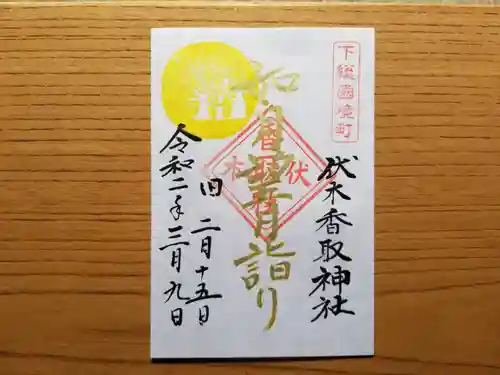 下総國境町
伏木香取神社
和の月齢月詣り
伏木
香取神社
旧 二月十五日
令和二年三月九日